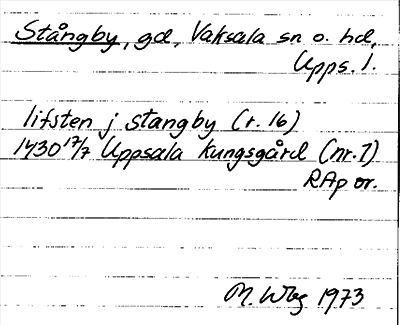 Stångby, gd, Vaksala sn o. hd,
Upps. l.
lifsten j stangby (r. 16)
1430 17/7 Uppsala kungsgård (nr. 7)
RAp or.
M. Wbg 1973